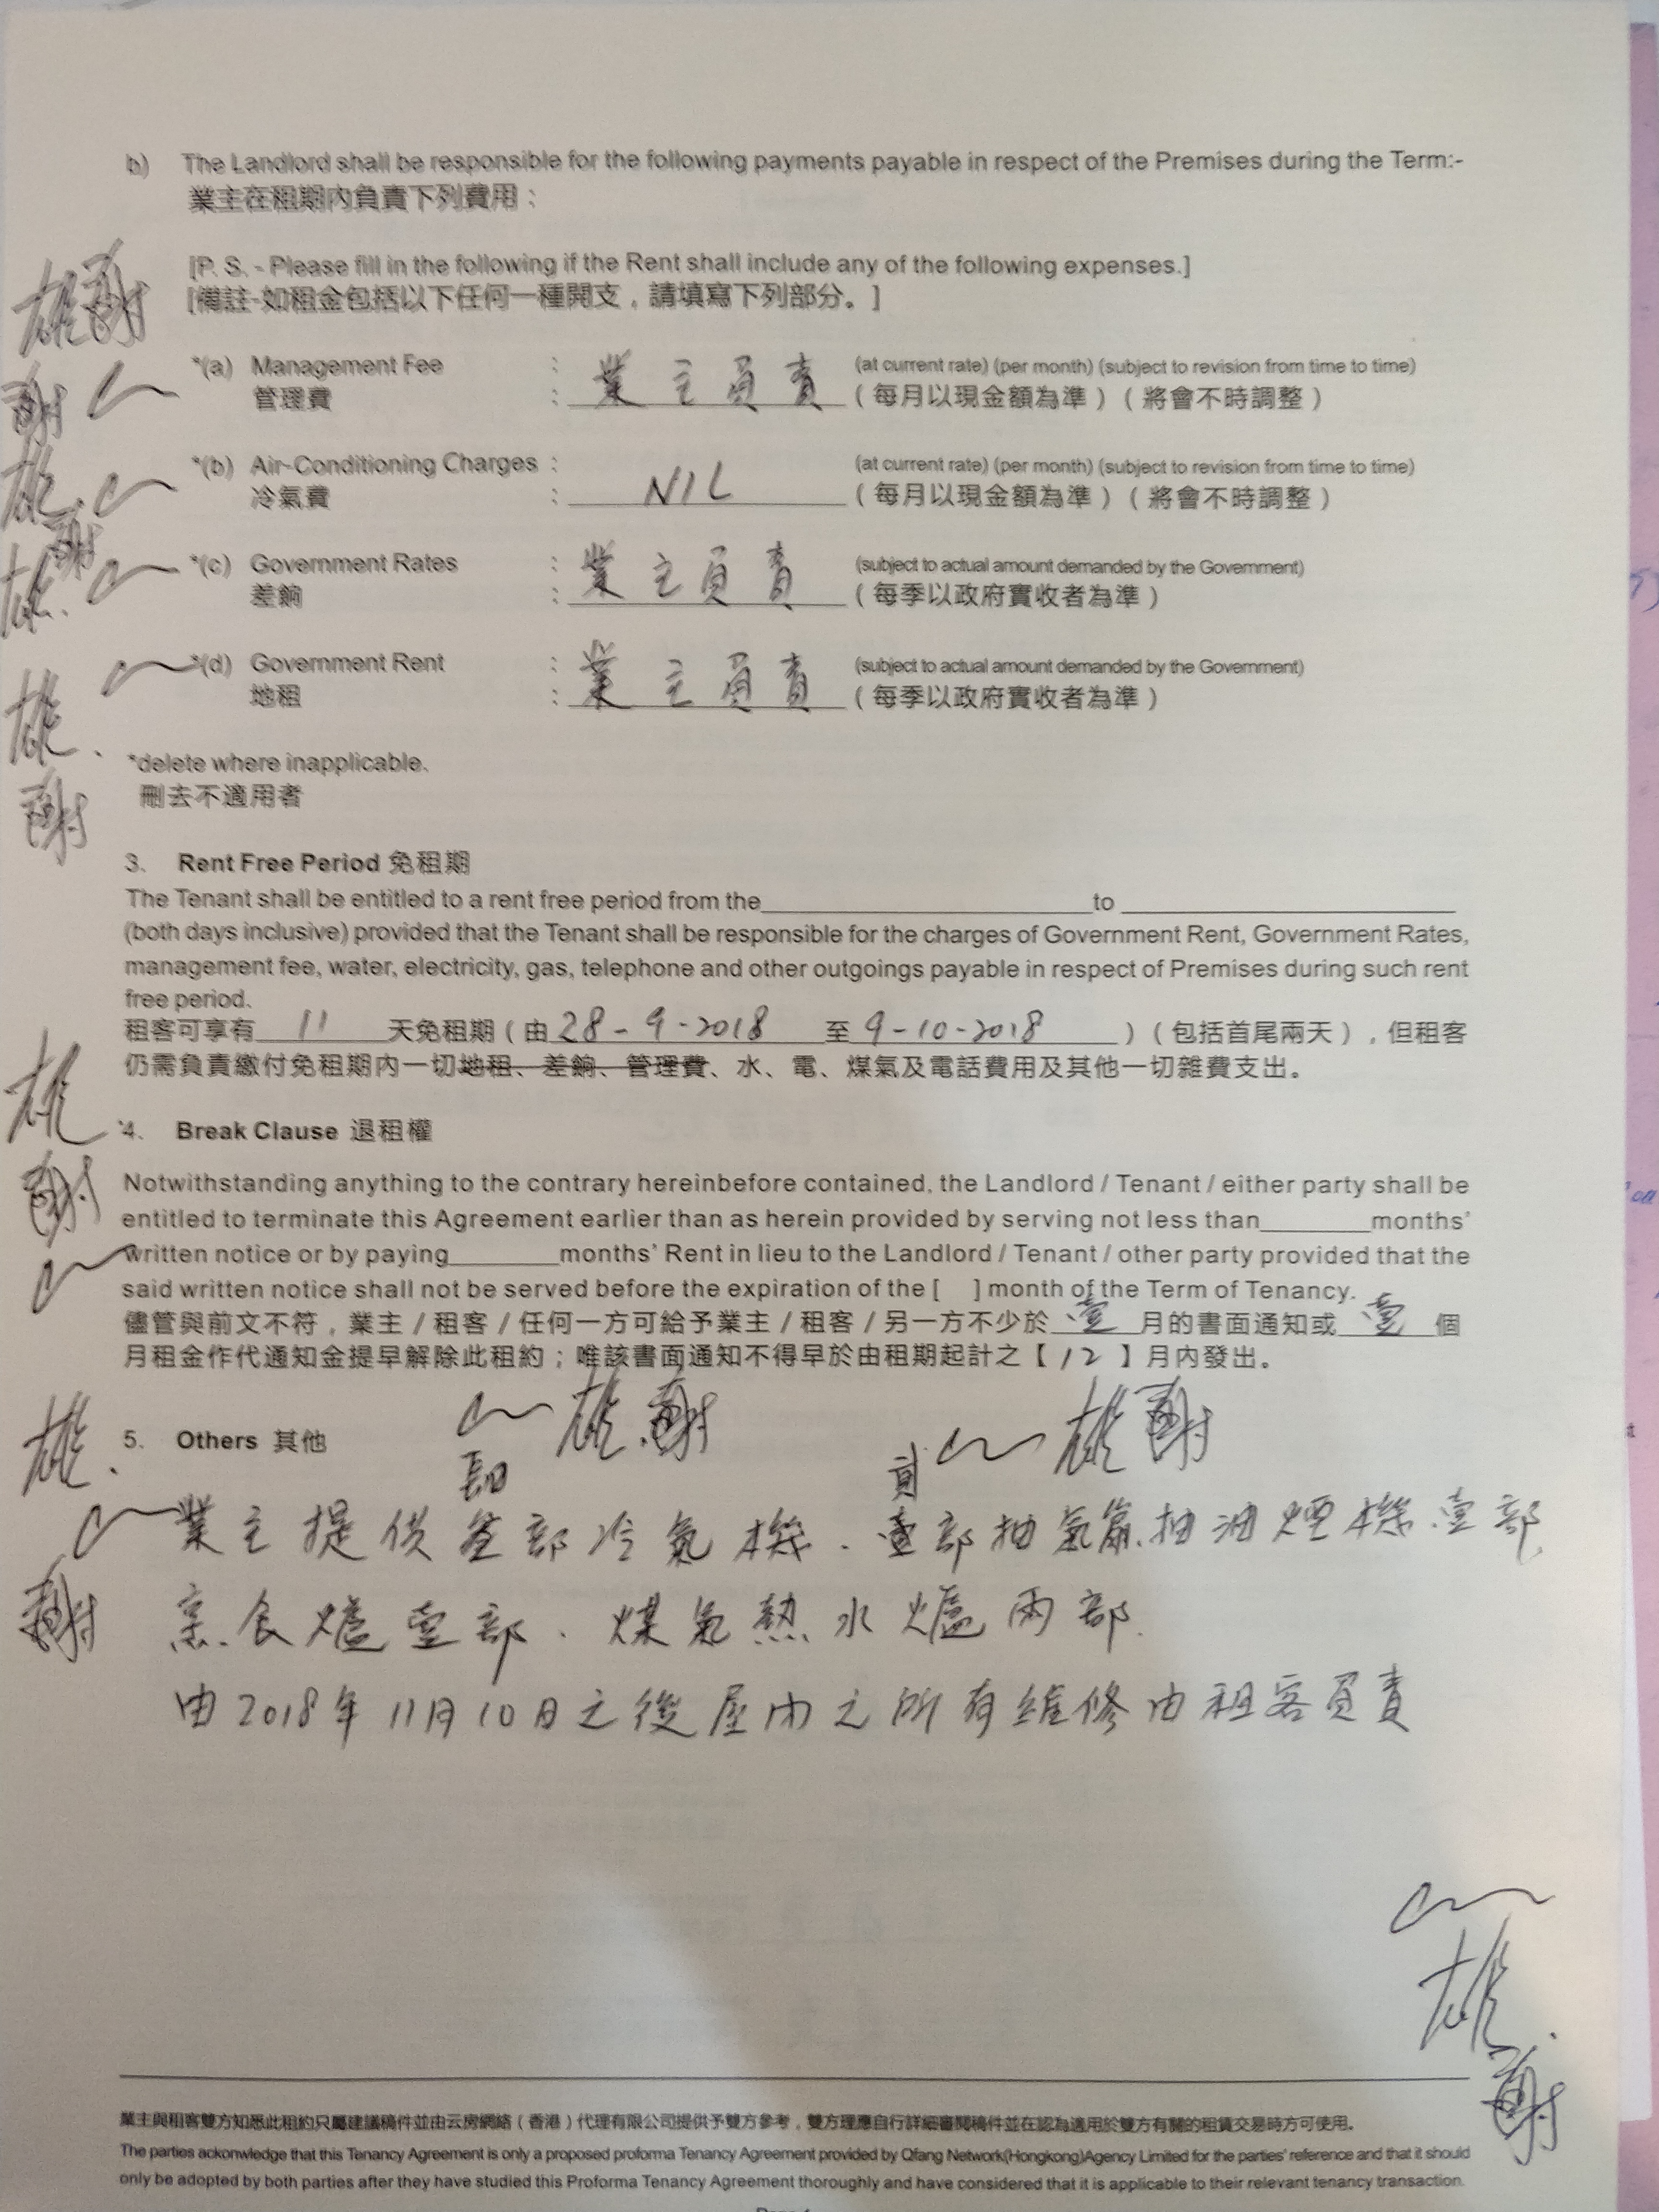 b) The Landlord shall be responsible for the following payments payable in respect of the Premises during the Term:-
業主在租期內負責下列費用：
[P. S. - Please fill in the following if the Rent shall include any of the following expenses.]
[備註-如租金包括以下任何一種開支，請填寫下列部分。]
*(a) Management Fee : 業主負責 (at current rate) (per month) (subject to revision from time to time)
管理費 : （每月以現金額為準）（將會不時調整）
*(b) Air-Conditioning Charges : NIL (at current rate) (per month) (subject to revision from time to time)
冷氣費 : （每月以現金額為準）（將會不時調整）
*(c) Government Rates : 業主負責 (subject to actual amount demanded by the Government)
差餉 : （每季以政府實收者為準）
*(d) Government Rent : 業主負責 (subject to actual amount demanded by the Government)
地租 : （每季以政府實收者為準）
*delete where inapplicable.
刪去不適用者
3. Rent Free Period 免租期
The Tenant shall be entitled to a rent free period from the to
(both days inclusive) provided that the Tenant shall be responsible for the charges of Government Rent, Government Rates,
management fee, water, electricity, gas, telephone and other outgoings payable in respect of Premises during such rent
free period.
租客可享有 11 天免租期（由 28-9-2018 至 9-10-2018 ）（包括首尾兩天），但租客
仍需負責繳付免租期內一切地租、差餉、管理費、水、電、煤氣及電話費用及其他一切雜費支出。
*4. Break Clause 退租權
Notwithstanding anything to the contrary hereinbefore contained, the Landlord / Tenant / either party shall be
entitled to terminate this Agreement earlier than as herein provided by serving not less than months'
written notice or by paying months' Rent in lieu to the Landlord / Tenant / other party provided that the
said written notice shall not be served before the expiration of the [ ] month of the Term of Tenancy.
儘管與前文不符，業主 / 租客 / 任何一方可給予業主 / 租客 / 另一方不少於 壹 月的書面通知或 壹 個
月租金作代通知金提早解除此租約；唯該書面通知不得早於由租期起計之【 12 】月內發出。
雄 謝 雄 謝
5. Others 其他
業主提供 部冷氣機．壹部抽氣扇．抽油煙機壹部
烹食爐壹部．煤氣熱水爐兩部．
由2018年11月10日之後屋內之所有維修由租客負責
雄
謝
業主與租客雙方知悉此租約只屬建議稿件並由云房網絡（香港）代理有限公司提供予雙方參考，雙方理應自行詳細審閱稿件並在認為適用於雙方有關的租賃交易時方可使用。
The parties ackonwledge that this Tenancy Agreement is only a proposed proforma Tenancy Agreement provided by Qfang Network(Hongkong)Agency Limited for the parties' reference and that it should
only be adopted by both parties after they have studied this Proforma Tenancy Agreement thoroughly and have considered that it is applicable to their relevant tenancy transaction.